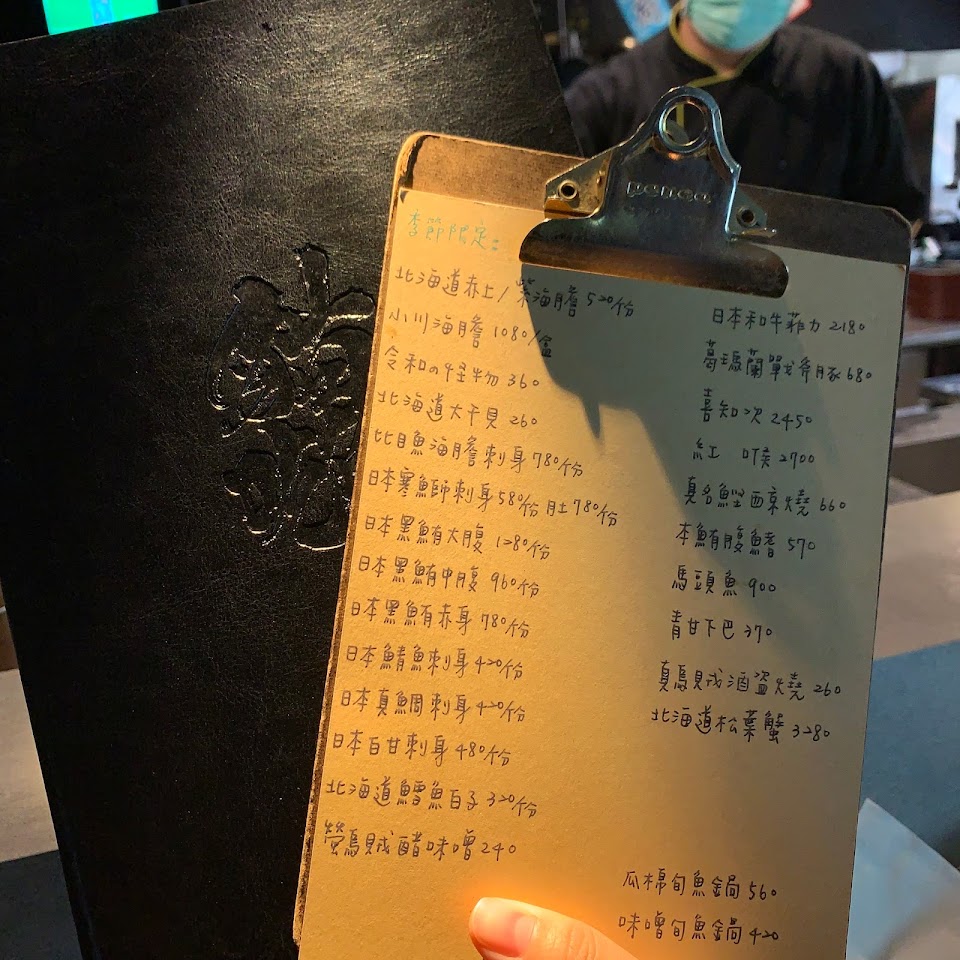 penco
季節限定:
北海道赤土/紫海膽 520份
小川海膽 1080/盒
令和の怪物 360
北海道大干貝 260
比目魚海膽刺身 780份
日本寒魚師刺身 580份 肚780份
日本黑鮪大腹 1280份
日本黑鮪中腹 960份
日本黑鮪赤身 780份
日本鯖魚刺身 420份
日本真鯛刺身 420份
日本白甘刺身 480份
北海道鱈魚白子 320份
螢烏賊醋味噌 240
日本和牛菲力 2180
葛瑪蘭戰斧豚 680
喜知次 2450
紅 喉 2700
真名鰹西京燒 660
本鮪腹鰭 570
馬頭魚 900
青甘下巴 370
真烏賊酒盜燒 260
北海道松葉蟹 3280
瓜棉旬魚鍋 560
味噌旬魚鍋 420